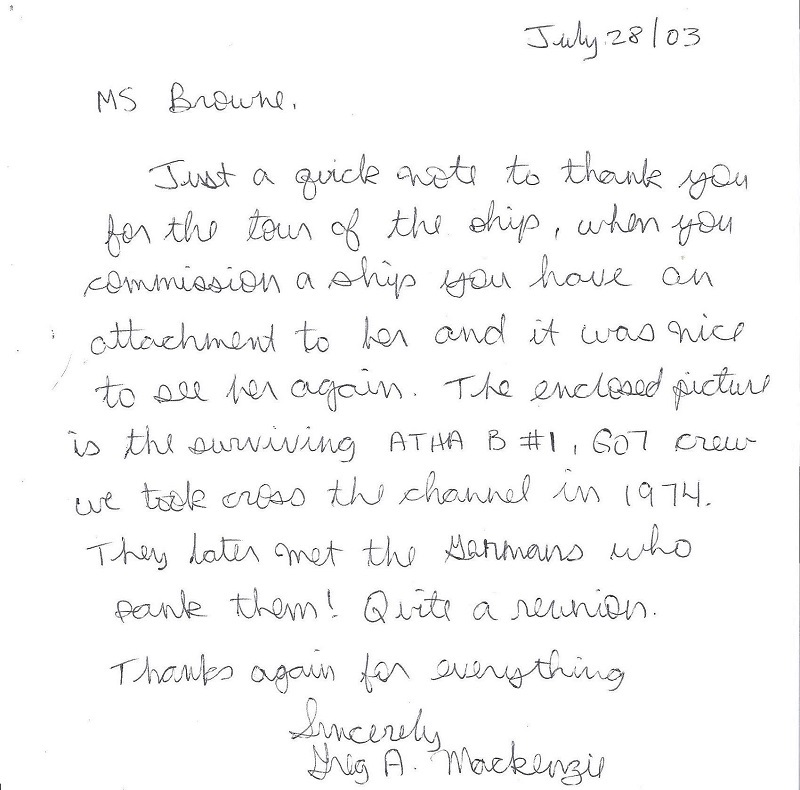 July 28/03
MS Browne.
Just a quick note to thank you
for the tour of the ship, when you
commission a ship you have an
attachment to her and it was nice
to see her again. The enclosed picture
is the surviving ATHA B #1, G07 crew
we took cross the channel in 1974.
They later met the Germans who
sank them! Quite a reunion.
Thanks again for everything
Sincerely
Greg A. Mackenzie